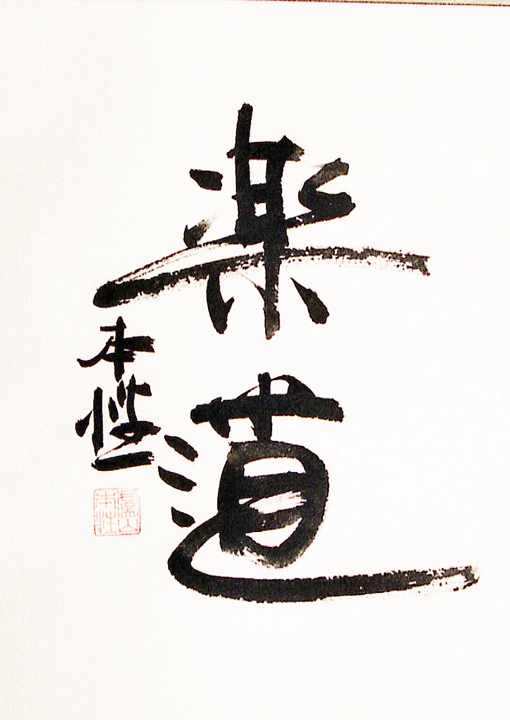 楽道
本性